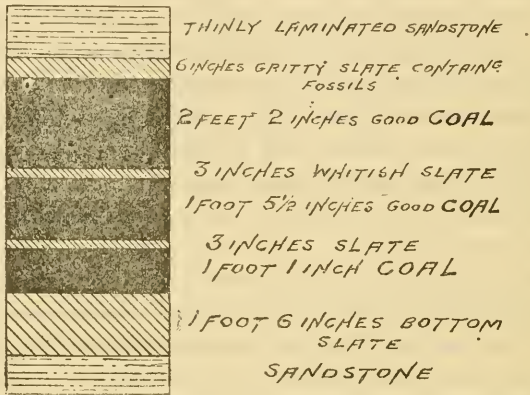 THINLY LAMINATED SANDSTONE
6 INCHES GRITTY SLATE CONTAING
FOSSILS
2 FEET 2 INCHES GOOD COAL
3 INCHES WHITISH SLATE
1 FOOT 5½ INCHES GOOD COAL
3 INCHES SLATE
1 FOOT 1 INCH COAL
1 FOOT 6 INCHES BOTTOM
SLATE
SANDSTONE